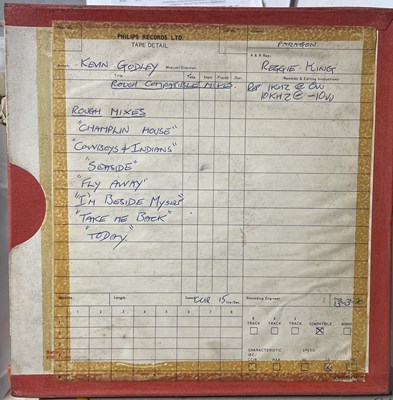 PARAGON
PHILIPS RECORDS LTD
TAPE DETAIL
A & R Rep:
Artist: KEVIN GODLEY Musical Director: REGGIE KING
Title Take Item Place Dur. Remarks & Editing Instructions
ROUGH COMPATIBLE MIXES. REF 1KHZ @ 0VU
10KHZ @ -10VU
ROUGH MIXES
"CHAMPLIN HOUSE"
"COWBOYS & INDIANS"
"SEASIDE"
"FLY AWAY"
"I'M BESIDE MYSELF"
"TAKE ME BACK"
"TODAY."
Machine: Length Speed CCIR 15 ins/Sec. Recording Engineer
1 2 3 4 5 6 7 8
8 TRACK 4 TRACK 2 TRACK COMPATIBLE MONO
CHARACTERISTIC SPEED
CCIR NAB